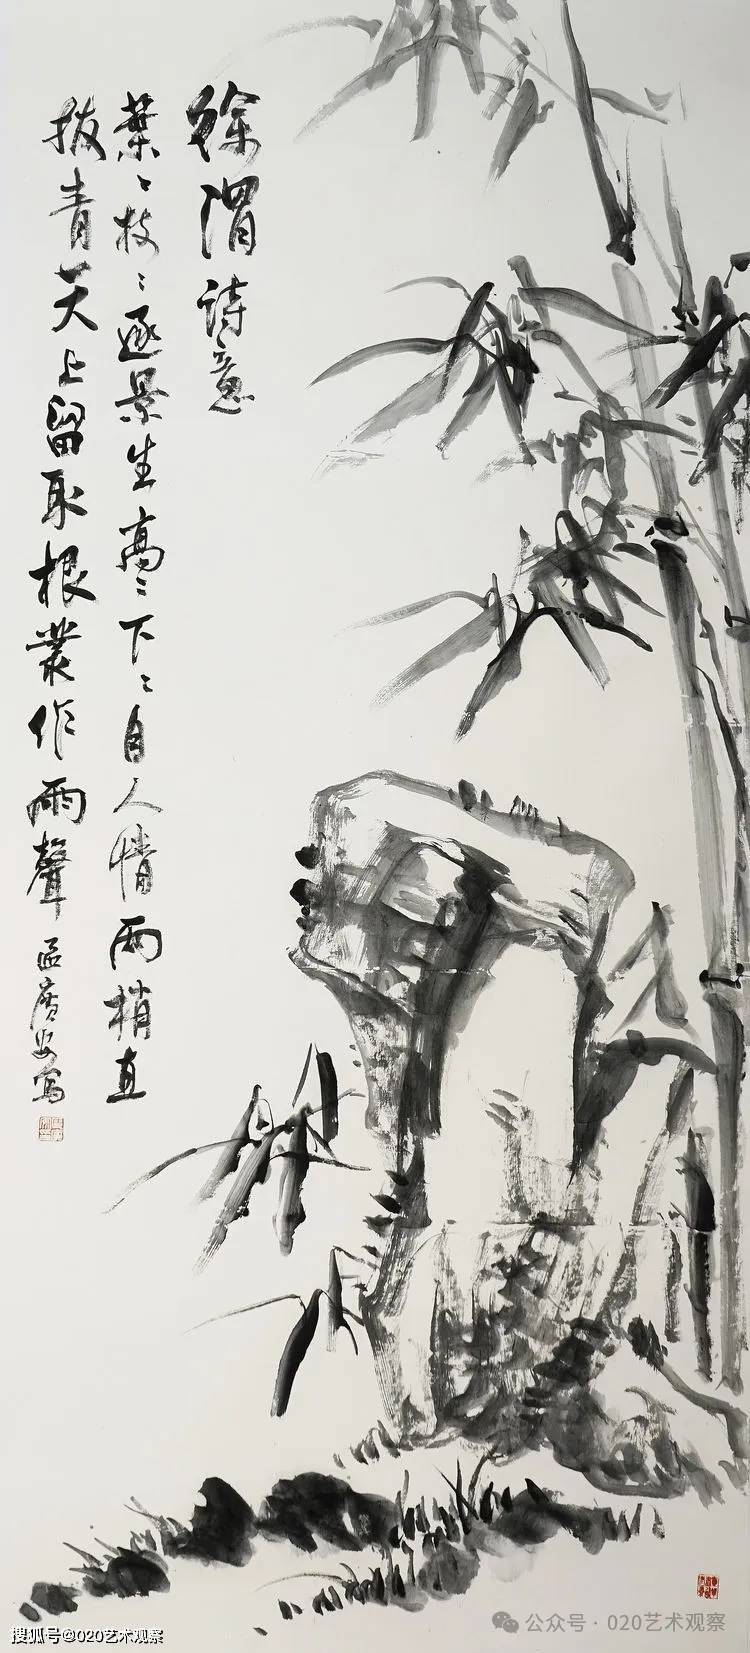 徐渭詩意
葉〻枝〻逐景生高〻下〻自人情兩梢直
拔青天上留取根叢作雨聲 孟廣安寫
搜狐号@020艺术观察
公众号·020艺术观察